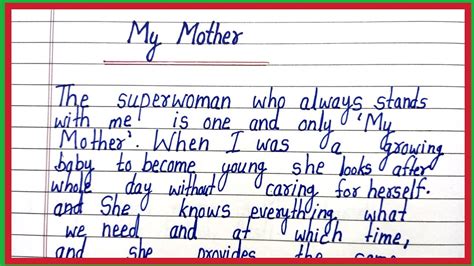 My Mother
The superwoman who always stands
with me is one and only 'My
Mother'. When I was a growing
baby to become young she looks after
whole day without caring for herself.
and She knows everything what
we need, and at which time,
and she provides the same